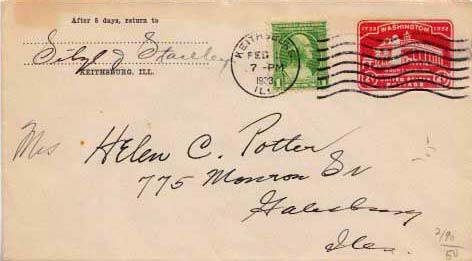 After 5 days, return to
Stanley
KEITHSBURG, ILL.
KEITHSBURG
FEB
7-PM
1933
ILL.
1732 WASHINGTON 1932
POSTAGE
Mrs Helen C. Potter
775 Monroe St
Galesburg
Ills.
2/90
50